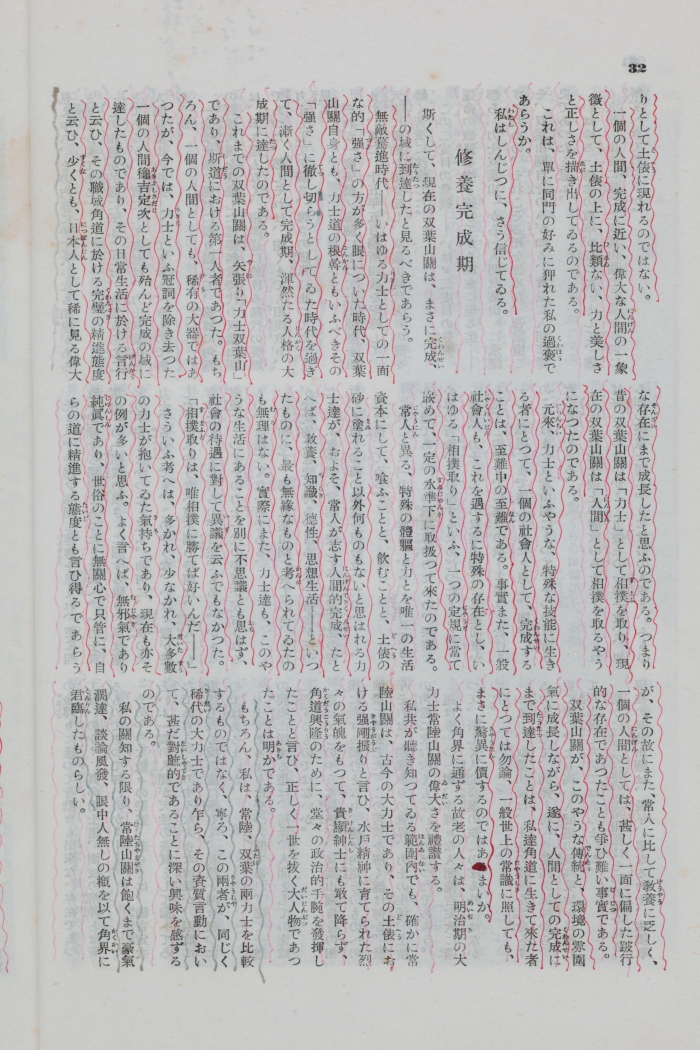 32
りとして土俵に現れるのではない。
一個の人間、完成に近い、偉大な人間の一象
徴として、土俵の上に、比類ない、力と美しさ
と正しさを描き出してゐるのである。
これは、單に同門の好みに狎れた私の過褒で
あらうか。
私はしんじつに、さう信じてゐる。
修養完成期
斯くして、現在の双葉山關は、まさに完成、
――の域に到達したと見るべきであらう。
無敵驀進時代――いはゆる力士としての一面
な的「强さ」の方が多く眼についた時代、双葉
山關自身とも、力士道の根幹ともいふべきその
「强さ」に徹し切らうとしてゐた時代を過ぎ
て、漸く人間として完成期、渾然たる人格の大
成期に達したのである。
これまでの双葉山關は、矢張り「力士双葉山」
であり、斯道における第一人者であつた。もち
ろん、一個の人間としても、稀有の大器ではあ
つたが、今では、力士といふ冠詞を除き去つた
一個の人間龝吉定次としても殆んど完成の域に
達したものであり、その日常生活に於ける言行
と云ひ、その職域角道に於ける完璧の精進態度
と云ひ、少くとも、日本人として稀に見る偉大
な存在にまで成長したと思ふのである。つまり
昔の双葉山關は「力士」として相撲を取り、現
在の双葉山關は「人間」として相撲を取るやう
になつたのである。
元來、力士といふやうな、特殊な技能に生き
る者にとつて、一個の社會人として、完成する
ことは、至難中の至難である。事實また、一般
社會人も、これを遇するに特殊の存在とし、い
はゆる「相撲取り」といふ、一つの定規に當て
嵌めて、一定の水準下に取扱つて來たのである。
常人と異る、特殊の體軀と力とを唯一の生活
資本にして、喰ふことと、飮むことと、土俵の
砂に塗れること以外何ものもないと思はれる力
士達が、およそ、常人が志す人間的完成、たと
へば、敎養、知識、德性、思想生活――といつ
たものに、最も無緣なものと考へられてゐたの
も無理はない。實際にまた、力士達も、このや
うな生活にあることを別に不思議とも思はず、
社會の待遇に對して異議を云ふでもなかつた。
「相撲取りは、唯相撲に勝てば好いんだ――」
さういふ考へは、多かれ、少なかれ、大多數
の力士が抱いてゐた氣持ちであり、現在も亦そ
の例が多いと思ふ。よく言へば、無邪氣であり
純眞であり、世俗のことに無關心で只管に、自
らの道に精進する態度とも言ひ得るであらう
が、その故にまた、常人に比して敎養に乏しく、
一個の人間としては、甚しく一面に偏した跛行
的な存在であつたことも爭ひ難い事實である。
双葉山關が、このやうな傳統と、環境の雰圍
氣に成長しながら、遂に、人間としての完成に
まで到達したことは、私達角道に生きて來た者
にとつては勿論、一般世上の常識に照しても、
まさに驚異に價するのではあまいか。
よく角界に通ずる故老の人々は、明治期の大
力士常陸山關の偉大さを禮讃する。
私共が聽き知つてゐる範圍內でも、確かに常
陸山關は、古今の大力士であり、その土俵にお
ける强剛振りと言ひ、水戶精神に育てられた烈
々の氣魄をもつて、貴顯紳士にも敢て降らず、
角道興隆のために、堂々の政治的手腕を發揮し
たことと言ひ、正しく一世を拔く大人物であつ
たことは明かである。
もちろん、私は、常陸、双葉の兩力士を比較
するものではなく、寧ろ、この兩者が、同じく
稀代の大力士であり乍ら、その資質言動におい
て、甚だ對蹠的であることに深い興味を感ずる
のである。
私の關知する限り、常陸山關は飽くまで豪氣
濶達、談論風發、眼中人無しの槪を以て角界に
君臨したものらしい。